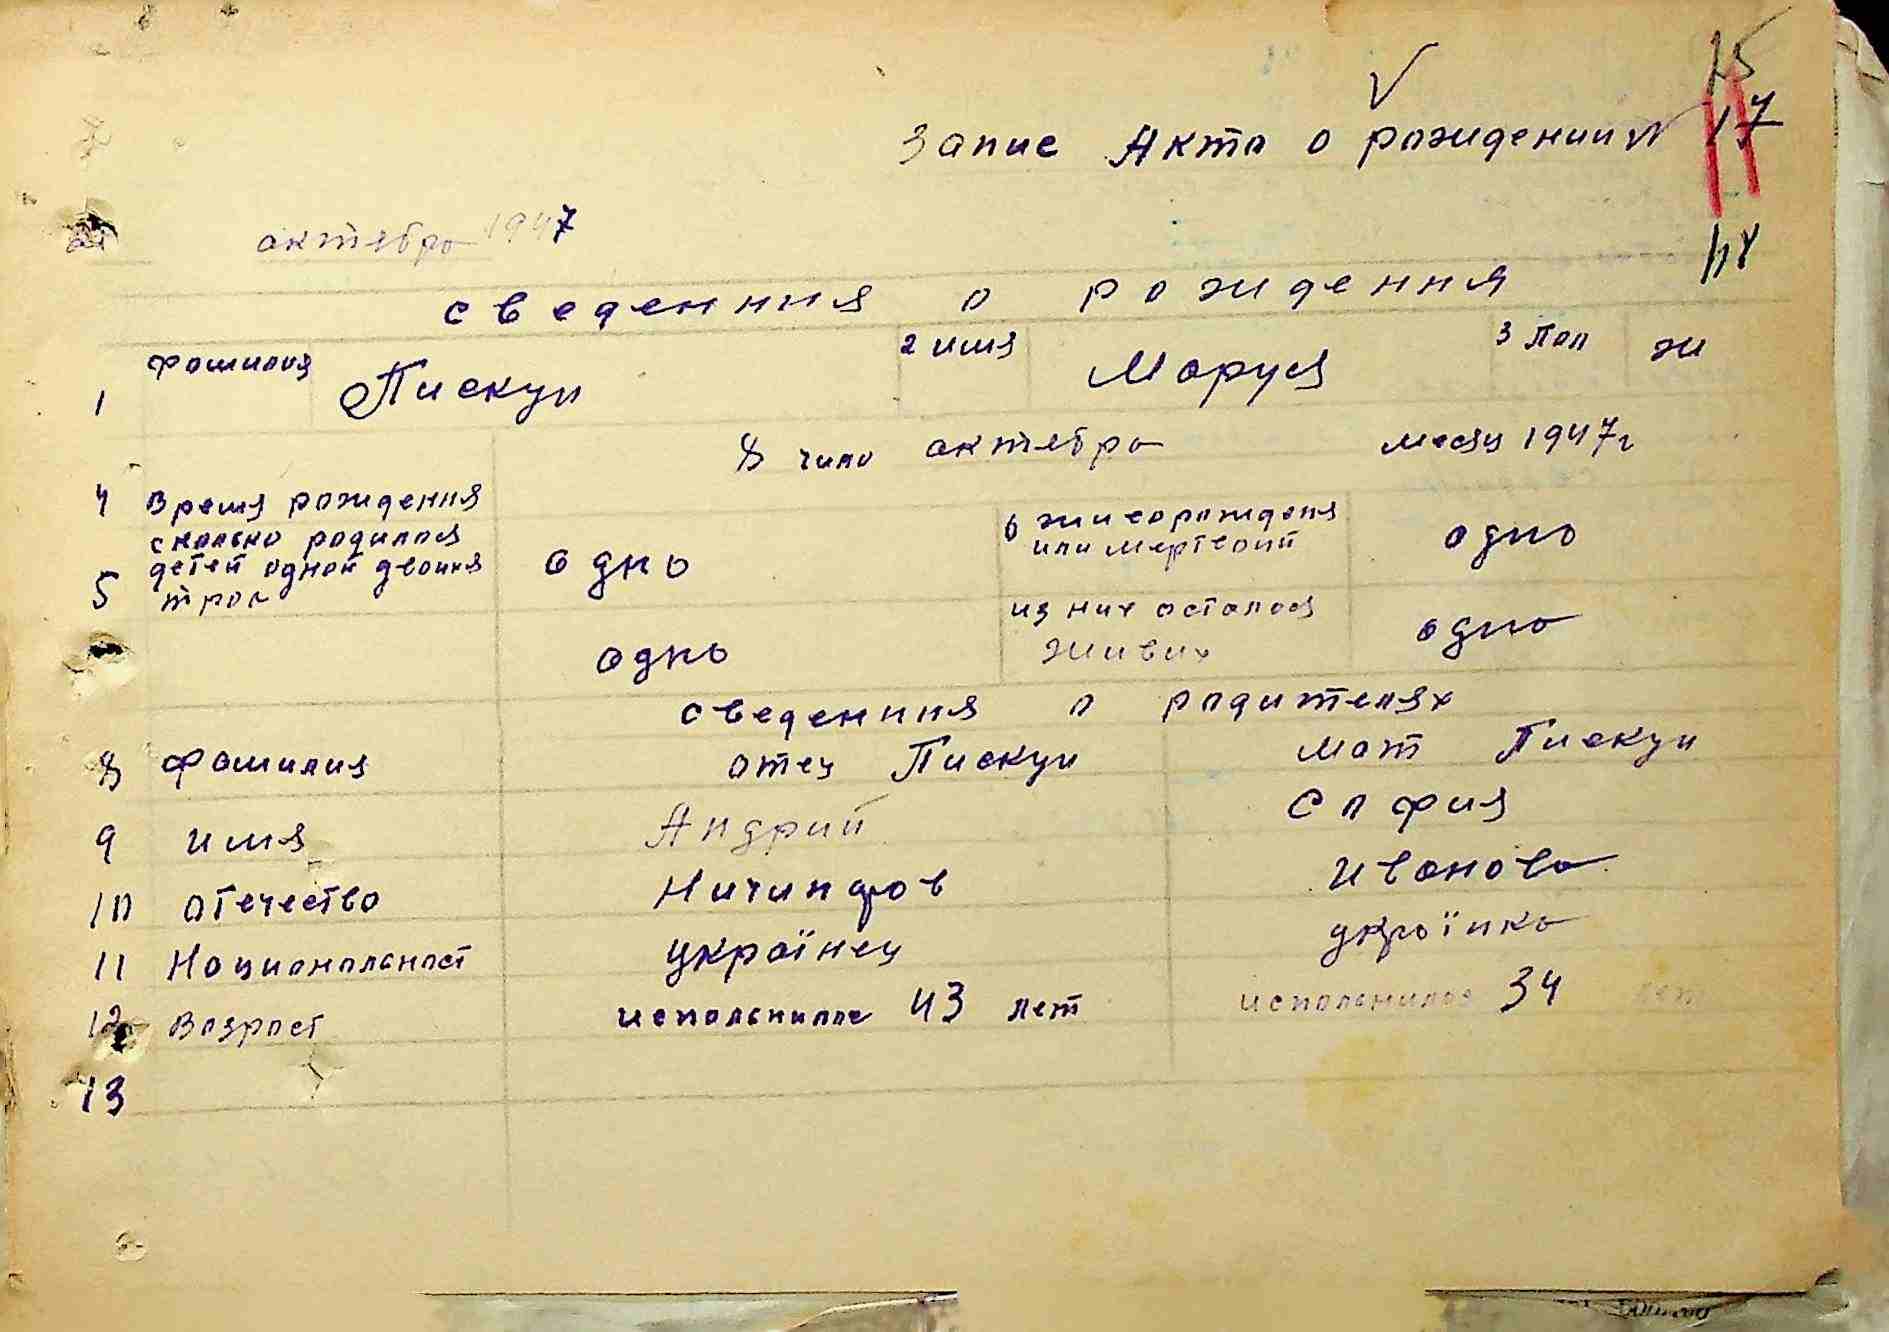 15
Запис Акта о рождении N 17
октября 1947
18
сведенния о рождення
1 фамилия Пискун 2 имя Маруся 3 Пол ж
8 число октября месяц 1947г
4 Время рождення
5 сколько родилося детей одной двойня трое
одно
6 живорожденя или мертвой
одно
одно
из них осталося живих
одно
сведенния о родителях
8 фамилия отец Пискун мат Пискун
9 имя Андрий София
10 отечество Ничипоров Иванова
11 Национальност українец українка
12 Возраст исполнилос 43 лет исполнилос 34 лет
13